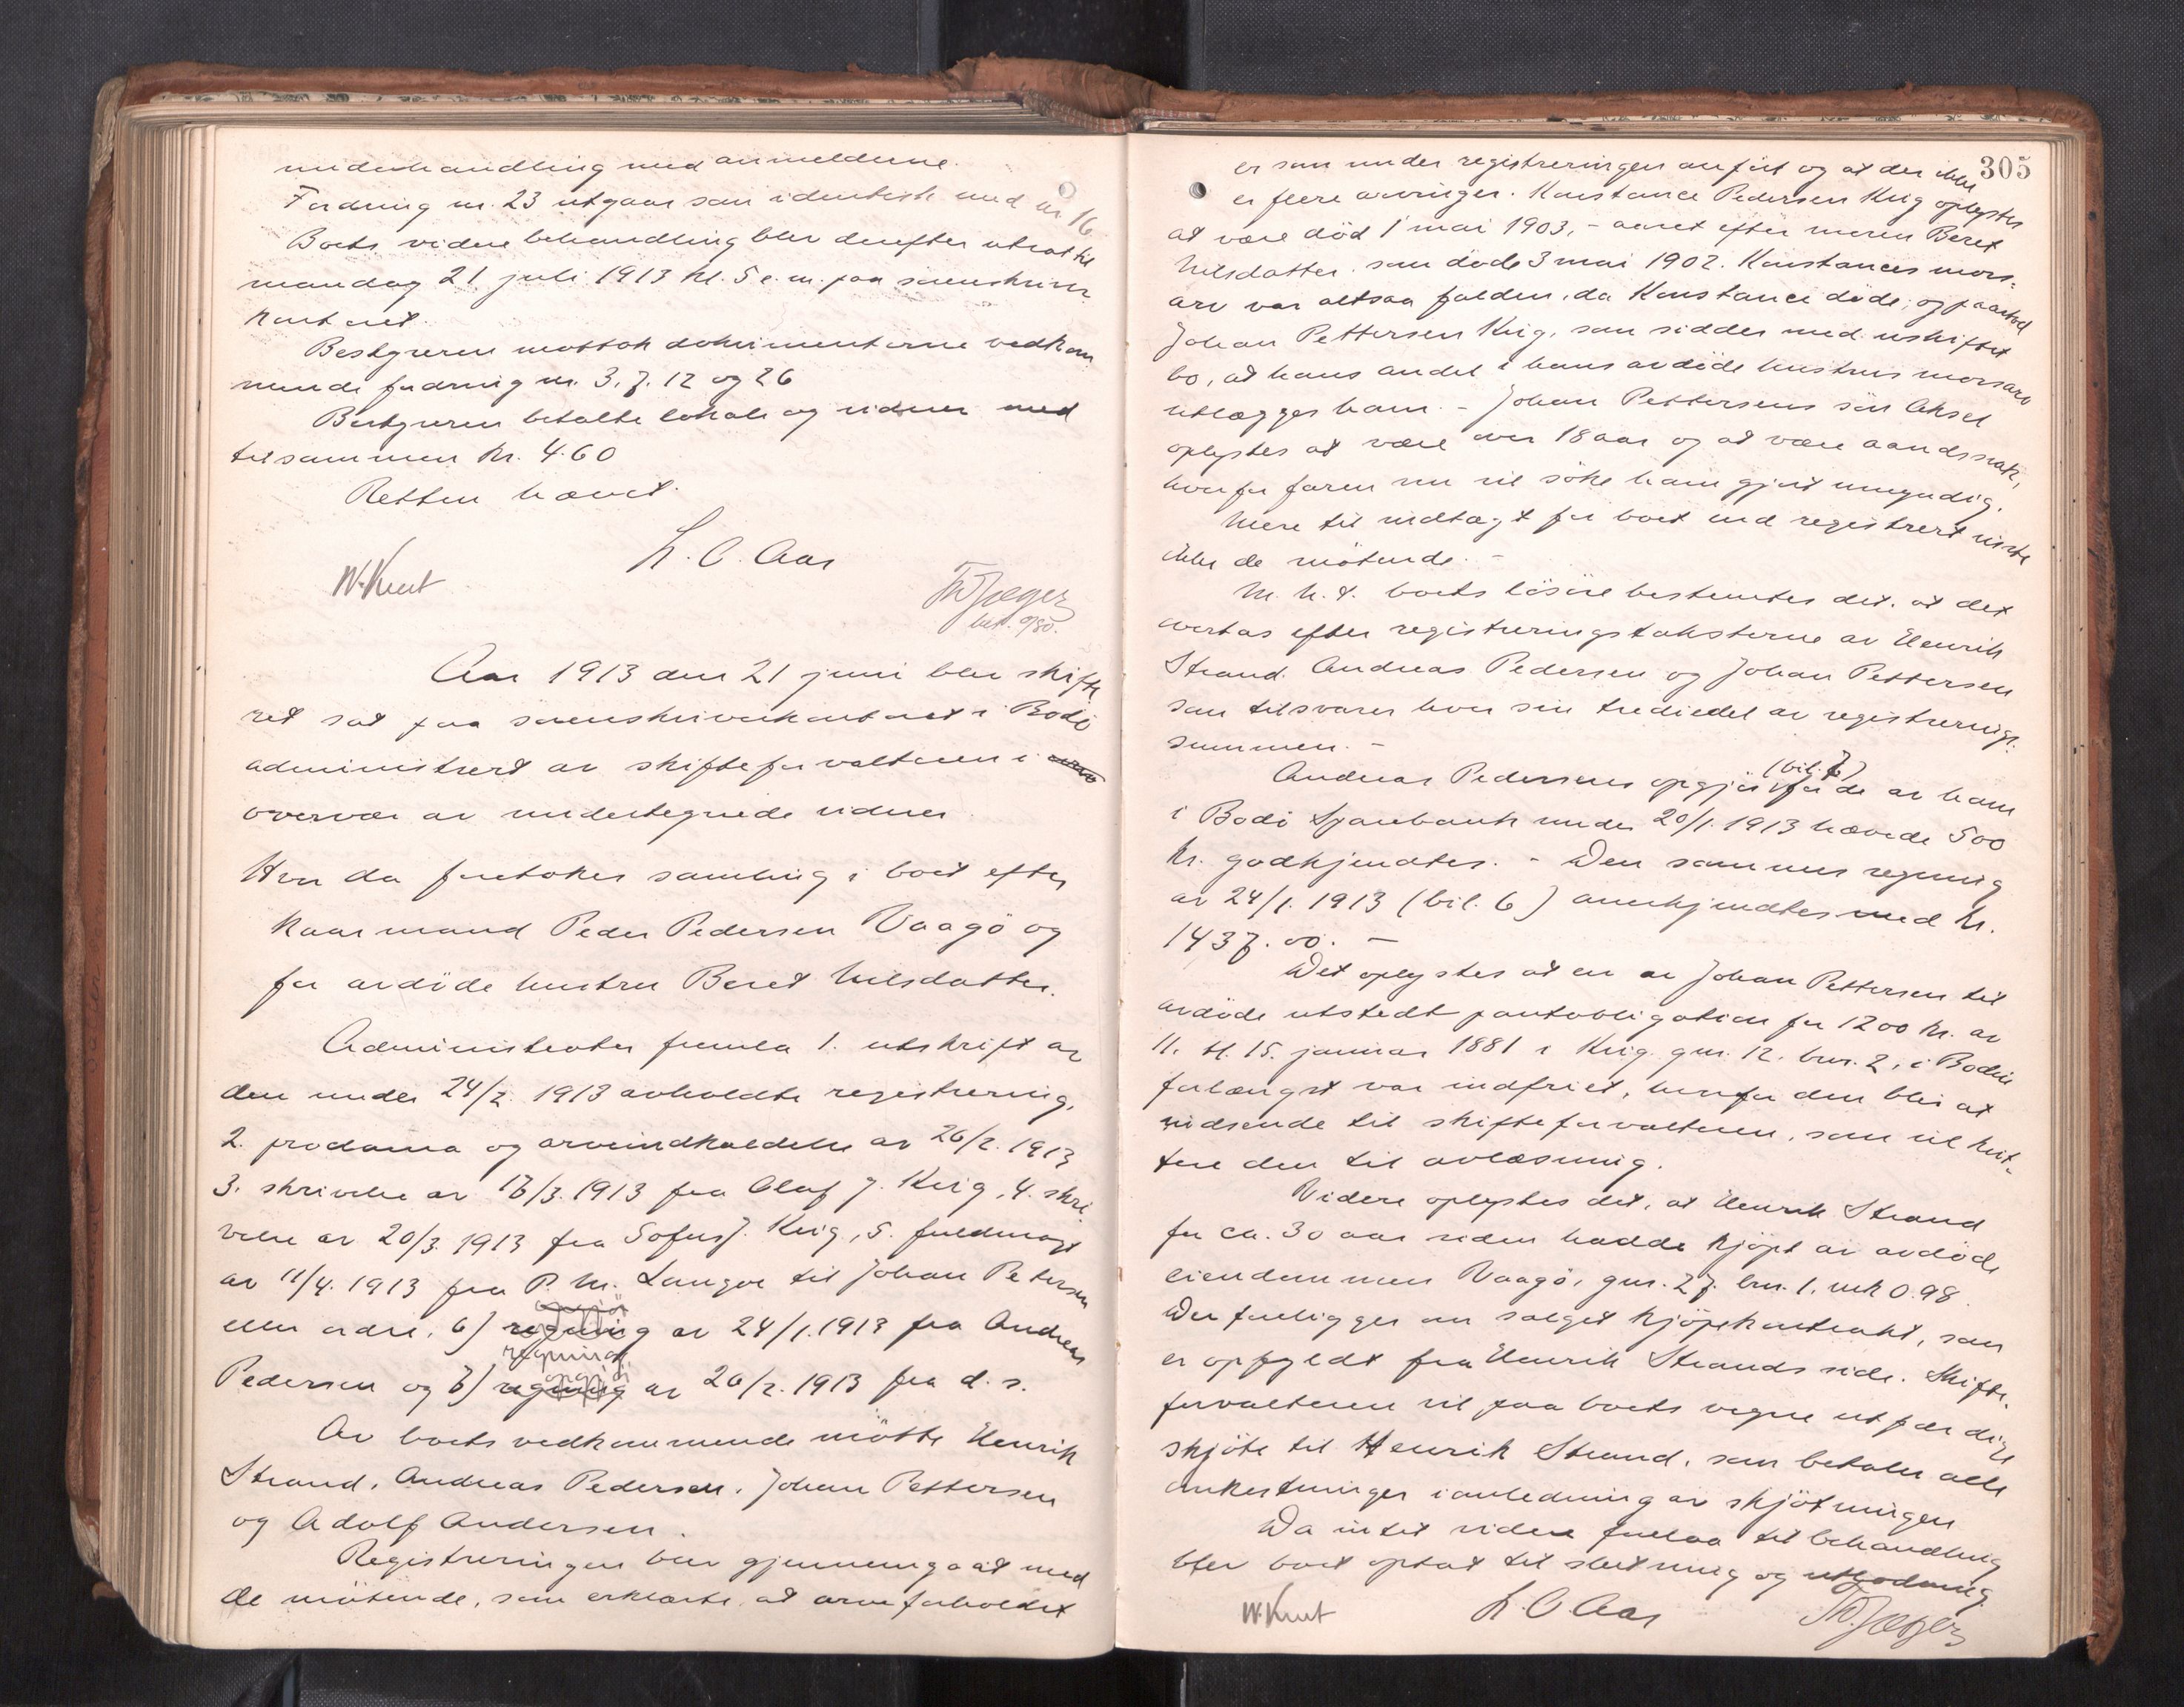 underhandling med anmelderne.
Fordring nr. 23 utgaar som identisk med nr 16
Boets videre behandling blev derefter utsat til
mandag 21. juli 1913 kl. 5 e.m. paa sorenskriver
kontoret.
Bestyreren mottok dokumenterne vedkom
mende fordring nr. 3, 7, 12 og 26
Bestyreren betalte lokale og vidner med
tilsammen kr. 4.60
Retten hævet.
L. O. Aas
W. Knut
Th Jæger
bet. 9/80.
Aar 1913 den 21 juni blev skifte
ret sat paa sorenskriverkontoret i Bodö
administrert av skifteforvalteren i
overvær av undertegnede vidner
Hvor da foretokes samling i boet efter
kaarmand Peder Pedersen Vaagö og
før avdöde hustru Beret Nilsdatter.
Administrator fremla 1. utskrift av
den under 24/2. 1913 avholdte registrering,
2. proclama og arveindkaldelse av 26/2. 1913
3. skrivelse av 18/3. 1913 fra Olaf J. Keig, 4. skri
velse av 20/3. 1913 fra Sofus J. Keig, 5. fuldmagt
av 11/4. 1913 fra P. M. Langve til Johan Petersen
opgjör
eller ordre, 6) regning av 24/1. 1913 fra Andreas
regning opgjör
Pedersen og 7) regning av 26/2. 1913 fra d. s.
Av boets vedkommende mötte Henrik
Strand, Andreas Pedersen, Johan Pettersen
og Adolf Andersen.
Registreringen blev gjennemgaat med
de mötende, som erklærte, at arveforholdet
305
er som under registreringen anfört og at der ikke
er flere arvinger. Konstance Pedersen Keig oplystes
at være död 1 mai 1903, - aaret efter moren Beret
Nilsdatter, som döde 3 mai 1902. Konstances mors-
arv var altsaa falden, da Konstance döde, og paastod
Johan Pettersen Keig, som sidder med uskiftet
bo, at hans andel i hans avdöde hustrus morsarv
utlægges ham. - Johan Pettersens sön Aksel
oplystes at være over 18 aar og at være aandssvak,
hvorfor faren nu vil söke ham gjort umyndig.
Mere til indtægt for boet end registrert visste
ikke de mötende. -
M. h. t. boets lösöre bestemtes det, at det
overtas efter registreringstaksterne av Henrik
Strand, Andreas Pedersen og Johan Pettersen
som tilsvarer hver sin trediedel av registrerings-
summen. -
(bil. 7)
Andreas Pedersens opgjör for de av ham
i Bodö Sparebank under 20/1. 1913 hævede 500
kr. godkjendtes. - Den sammes regning
av 24/1. 1913 (bil. 6) anerkjendtes med kr.
1437.00. -
Det oplystes at en av Johan Pettersen til
avdöde utstedt pantobligation for 1200 kr. av
11. tl. 15. januar 1881 i Keig. gnr. 12. bnr. 2, i Bodin
forlængst var indfriet, hvorfor den blir at
indsende til skifteforvalteren, som vil kvit-
tere den til avlæsning.
Videre oplystes det, at Henrik Strand
for ca. 30 aar siden hadde kjöpt av avdöde
eiendommen Vaagö, gnr. 27. bnr. 1. mk 0.98
Der foreligger om salget kjöpekontrakt, som
er opfyldt fra Henrik Strands side. Skifte-
forvalteren vil paa boets vegne utfærdige
skjöte til Henrik Strand, som betaler alle
omkostninger i anledning av skjötningen
Da intet videre forelaa til behandling
blev boet optat til slutning og utlodning
W. Knut
L. O Aas
Th. Jæger